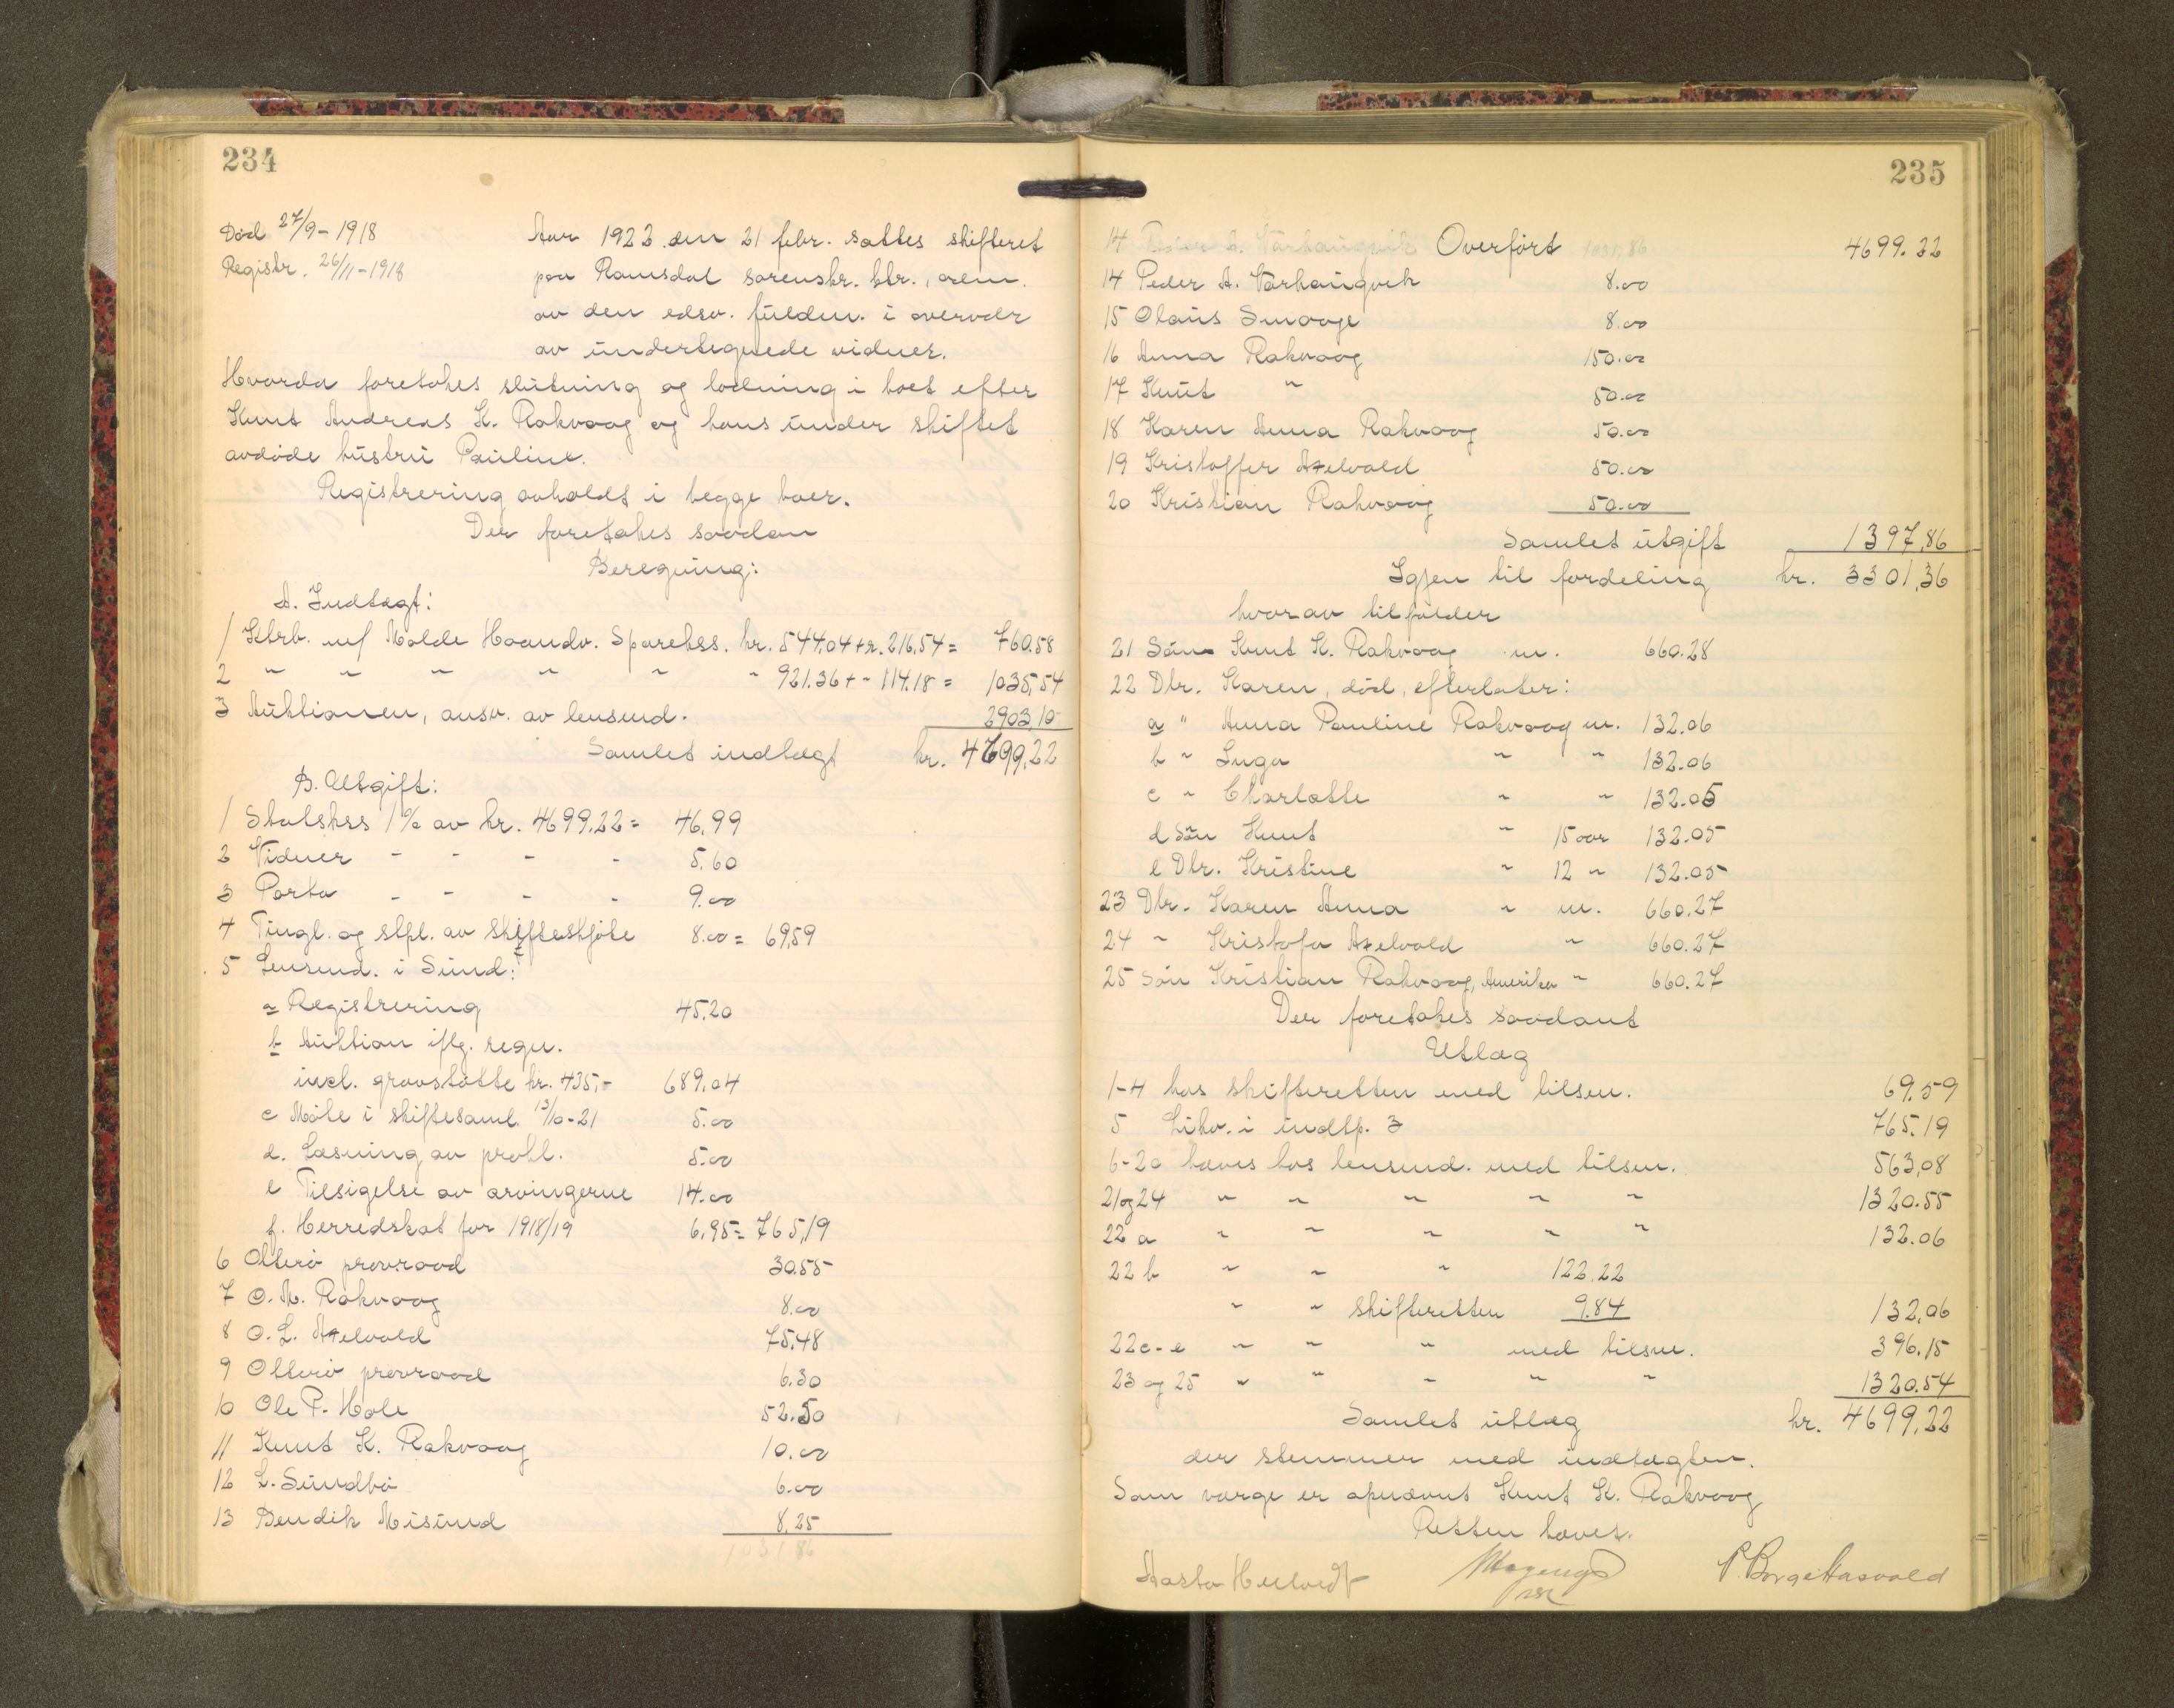 234
Död 27/9-1918
Registr. 26/11-1918
Aar 1922 den 21 febr. sattes skifteret
paa Romsdal sorenskr. ktr., adm.
av den edsv. fuldm. i overvær
av undertegnede vidner.
Hvorda foretokes slutning og lodning i boet efter
Knut Andreas K. Rakvaag og hans under skiftet
avdöde hustru Pauline.
Registrering avholdt i begge boer.
Der foretokes saadan
Beregning:
A. Indtægt:
1 Ktrb. m/ Molde Haandv. Sparekss. kr. 544,04 + r. 216,54 = 760.58
2 " " " " " " 921.36 + " 114.18 = 1035,54
3 Auktionen, ansv. av lensmd. 2903,10
Samlet indtægt kr. 4699,22
B. Utgift:
1 Statskss 1% av kr. 4699.22 = 46,99
2 Vidner - - - - 5.60
3 Porto - - - - 9.00
4 Tingl. og stpl. av skifteskjöte 8.00 = 69,59
5 Lensmd. i Sund:
a Registrering 45,20
b Auktion iflg. regn.
incl. gravstötte kr. 435,- 689,04
c Möte i skiftesaml. 13/10-21 5.00
d. Læsning av prokl. 5.00
e Tilsigelse av arvingerne 14.00
f. Herredskat for 1918/19 6,95 = 765,19
6 Otterö provraad 30.55
7 O. M. Rakvaag 8.00
8 O. L. Axelvold 75.48
9 Otterö provraad 6.30
10 Ole P. Hole 52.50
11 Knut K. Rakvaag 10.00
12 L. Sundbö 6.00
13 Bendik Misund 8,25
1031 86
235
14 Peder A. Varhaugvik Overfört 1031,86 4699.22
14 Peder A. Varhaugvik 8.00
15 Olaus Smaage 8.00
16 Anna Rakvaag 150.00
17 Knut " 50.00
18 Karen Anna Rakvaag 50.00
19 Kristoffer Axelvold 50.00
20 Kristian Rakvaag 50.00
Samlet utgift 1397,86
Igjen til fordeling kr. 3301,36
hvorav tilfalder
21 Sön Knut K. Rakvaag m. 660.28
22 Dtr. Karen, död, efterlater:
a " Anna Pauline Rakvaag m. 132.06
b " Inga " " 132.06
c " Charlotte " " 132.05
d Sön Knut " 15 aar 132.05
e Dtr. Kristine " 12 " 132.05
23 Dtr. Karen Anna " m. 660.27
24 " Kristofa Axelvold " 660.27
25 Sön Kristian Rakvaag, Amerika " 660.27
Der foretokes saadant
Utlæg
1-4 hos skifteretten med tilsm. 69.59
5 Likv. i indtp. 3 765.19
6-20 hæves hos lensmd. med tilsm. 563,08
21 og 24 " " " " " 1320.55
22 a " " " " " 132.06
22 b " " " 122.22
" " skifteretten 9.84 132,06
22 c-e " " " med tilsm. 396.15
23 og 25 " " " " " 1320.54
Samlet utlæg kr. 4699,22
der stemmer med indtægten.
Som værge er opnævnt Knut K. Rakvaag
Retten hævet.